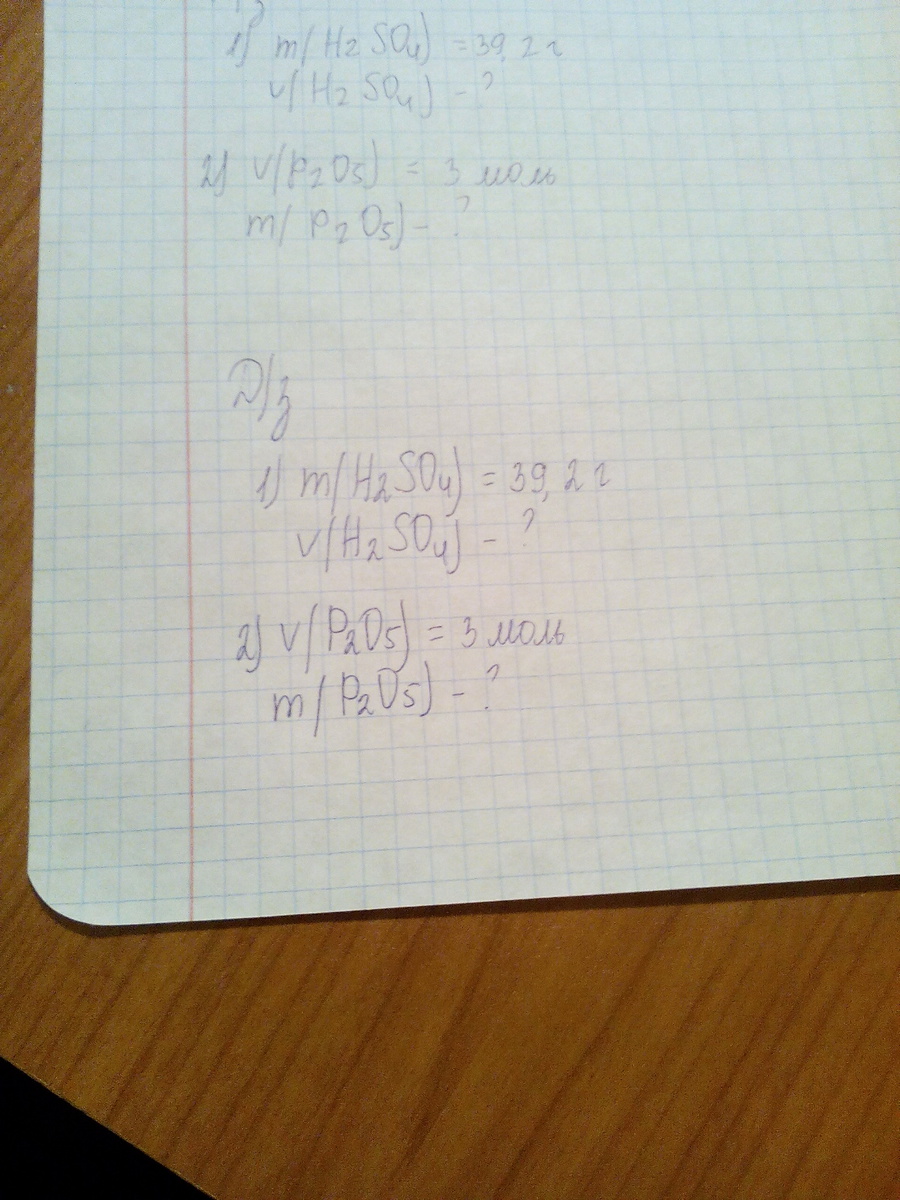 1) m(H₂SO₄) = 39,2 г
ν(H₂SO₄) - ?
2) ν(P₂O₅) = 3 моль
m(P₂O₅) - ?
Д/з
1) m(H₂SO₄) = 39,2 г
ν(H₂SO₄) - ?
2) ν(P₂O₅) = 3 моль
m(P₂O₅) - ?